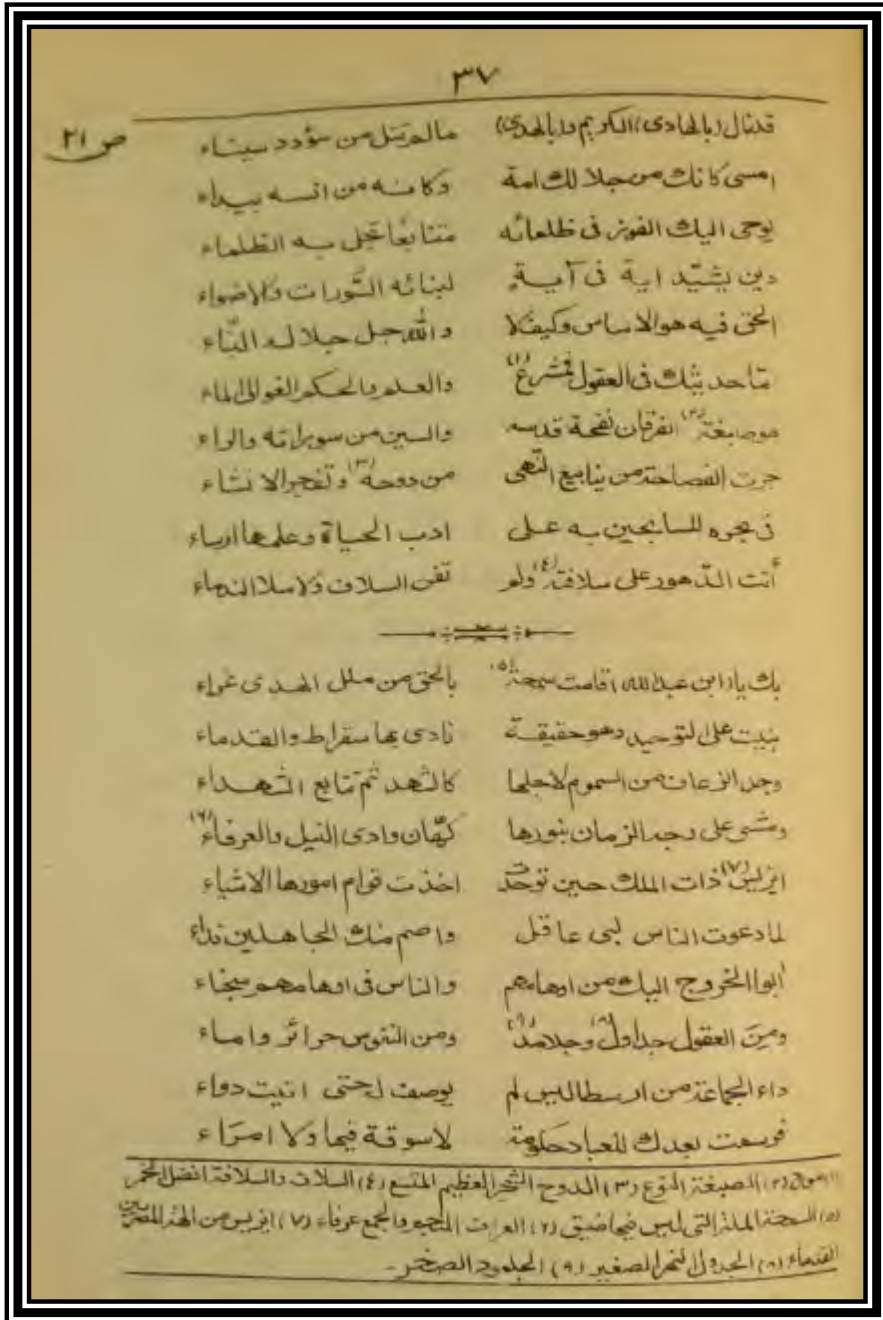 ٣٧
ص ٢١
قد نال (بالهادى) الكريم و(بالهدى) مالم تنل من سؤدد سيناء
امسى كانك من جلالك امة وكانه من انسه بيداء
يوحى اليك الفوز فى ظلمائه متتابعًا تجلى به الظلماء
دين يشيّد اية فى آية لبنائه السُّورات والاضواء
الحق فيه هو الاساس وكيف لا والله جل جلاله البنّاء
حديثك فى العقول فمشرع (١) والعلم والحكم الغوالى الماء
هو صبغة (٢) الفرقان نفحة قدسه والسين من سوراته والراء
جرت الفصاحة من ينابيع النّهى من دوحه (٣) وتفجر الانشاء
فى بحره للسابحين به على ادب الحياة وعلمها ارساء
أتت الدّهور على سلافته (٤) ولم تفن السلاف ولا سلا الندماء
بك يا (ابن عبدالله) قامت سمحة (٥) بالحق من ملل الهدى غراء
بنيت على التوحيد وهو حقيقة نادى بها سقراط والقدماء
وجد الزعاف من السموم لاجلها كالشهد ثم تتابع الشهداء
ومشى على وجه الزمان بنورها كهّان وادى النيل والعرفاء (٦)
ايزيس (٧) ذات الملك حين توحّدت اخذت قوام امورها الاشياء
لما دعوت الناس لبى عاقل واصم منك الجاهلين نداء
أبوا الخروج اليك من اوهامهم والناس فى اوهامهم سجناء
ومن العقول جداول (٨) وجلامد (٩) ومن النفوس حرائر واماء
داء الجماعة من ارسطاليس لم يوصف له حتى اتيت دواء
فرسمت بعدك للعباد حكومة لا سوقة فيها ولا امراء
(٢) الصبغة النوع (٣) الدوح الشجر العظيم المتسع (٤) السلاف والسلافة افضل الخمر
(٥) السمحة الملة التى ليس فيها ضيق (٦) العراف المنجم والجمع عرفاء (٧) ايزيس من الهة المصريين
القدماء (٨) الجدول النهر الصغير (٩) الجلمود الصخر.